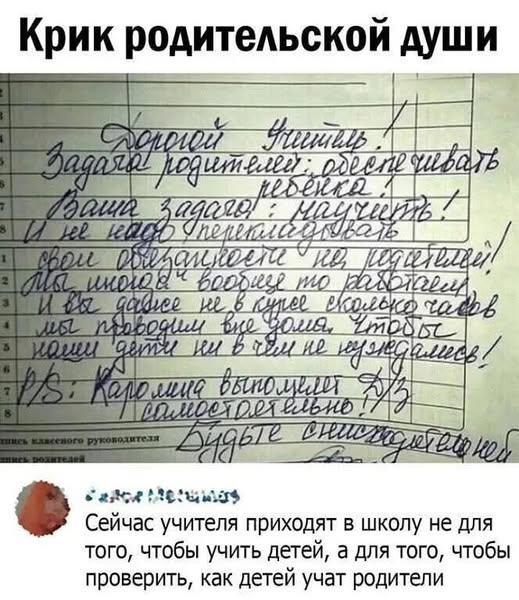 Крик родительской души
Дорогой Учитель!
Задача родителей: обеспечивать
ребёнка!
Ваша задача: научить!
И не надо перекладывать
свои обязанности на родителей!
Мы иногда вообще то работаем
И Вы даже не в курсе сколько часов
мы проводим вне дома, чтобы
наши дети ни в чём не нуждались!
P/S: Каролина выполняет Д/З
самостоятельно!
Будьте снисходительней
пись классного руководителя
пись родителей
Сейчас учителя приходят в школу не для
того, чтобы учить детей, а для того, чтобы
проверить, как детей учат родители